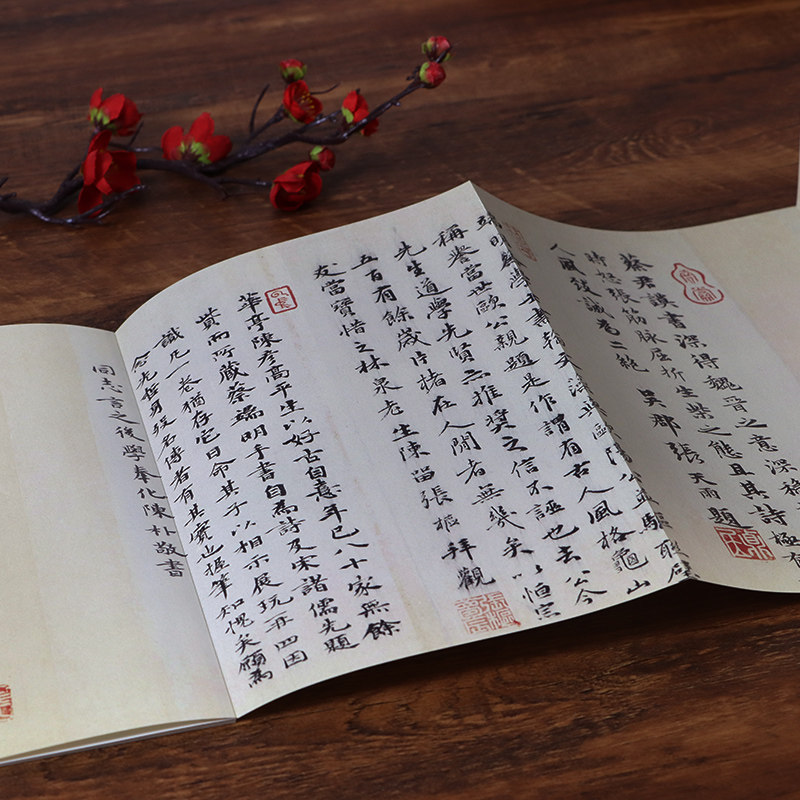 蔡君謨書深得魏晉之意深穩
時怒張筋脉屈折生柴之態且其詩極有
人風致誠卷二絶 吴郡張天雨題
端明蔡學士書
稱譽當世歐公親題是作謂有古人風格龜山
先生道學先賢亦推奬之信不誣也去公今
五百有餘歲片楮在人間者無幾矣
友當寶惜之林泉老生陳留張樞拜觀
華亭陳彥高平生以好古自意年已八十家無餘
貲而所藏蔡端明手書自為詩及宋諸儒先題
識凡一卷猶存它日命其子以相示展玩再四因
念先哲身後名傳者有其實也握筆知愧矣願為
同志言之後學奉化陳朴敬書